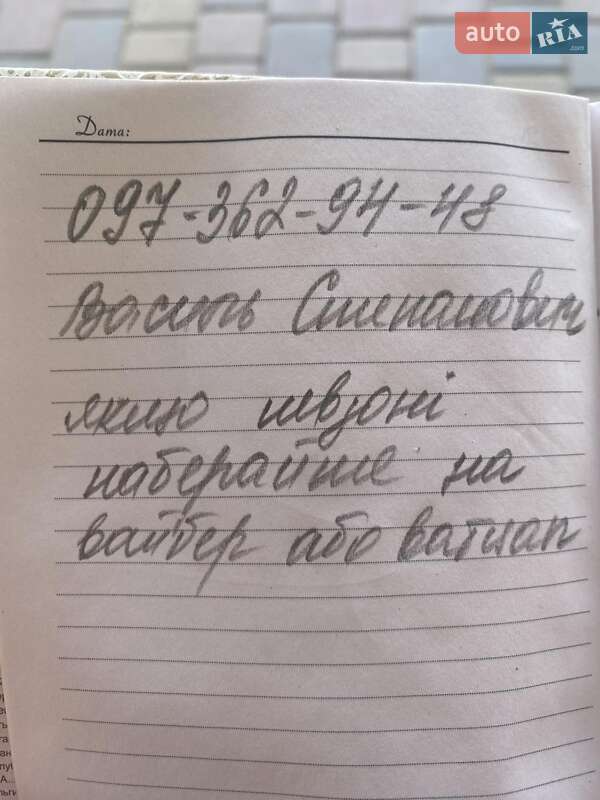 auto RIA.com
Дата:
097-362-94-48
Василь Степанович
якшо невзоні
наберайте на
вайбер або ватцап